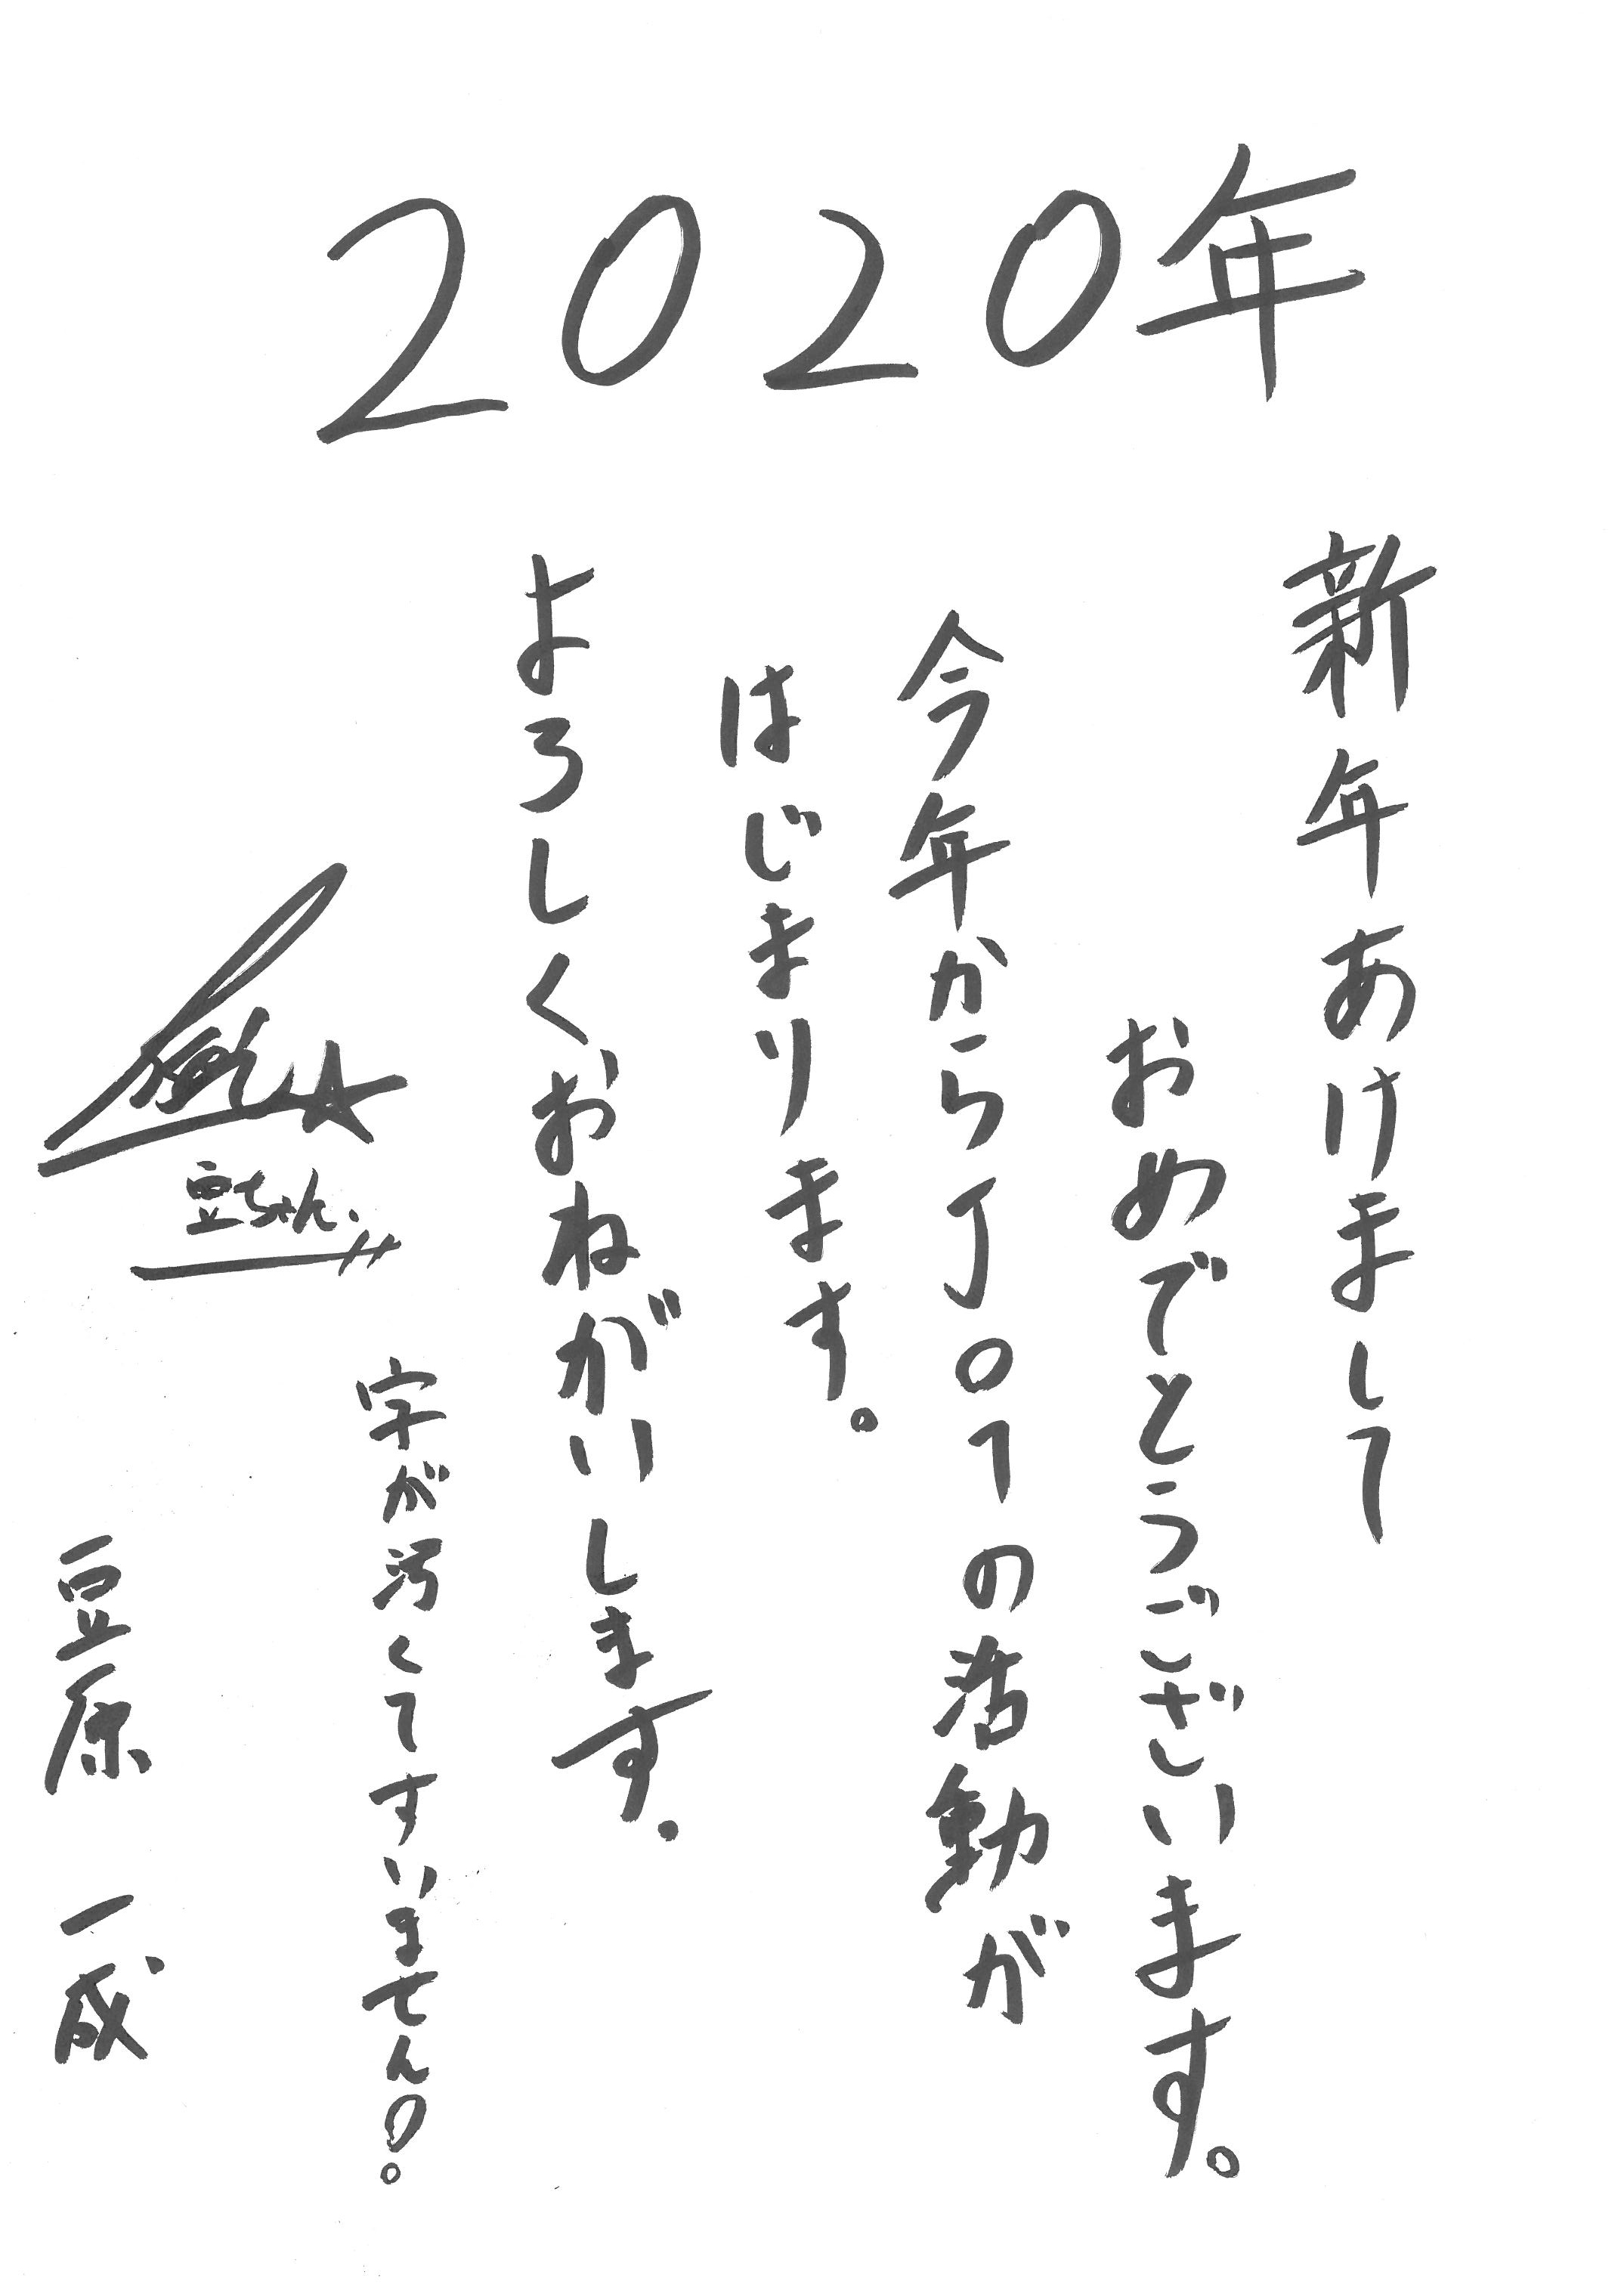 2020年
新年あけまして
おめでとうございます。
今年からJO1の活動が
はじまります。
よろしくおねがいします。
字が汚くてすいません!。
豆ちゃん
豆原 一成